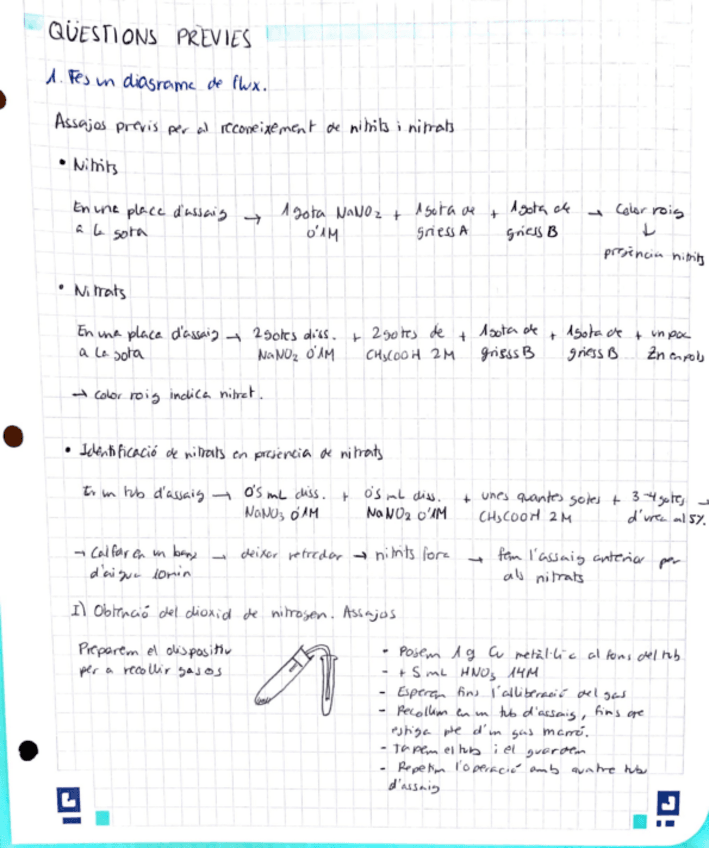 QÜESTIONS PRÈVIES
1. Fes un diagrama de flux.
Assajos previs per al reconeixement de nitrits i nitrats
• Nitrits
En una placa d'assaig → 1 gota NaNO2 + 1 gota de + 1 gota de → Color roig
a la gota 0'1M griess A griess B ↓
presència nitrits
• Nitrats
En una placa d'assaig → 2 gotes diss. + 2 gotes de + 1 gota de + 1 gota de + un poc
a la gota NaNO2 0'1M CH3COOH 2M griess B griess B Zn en pols
→ color roig indica nitrat.
• Identificació de nitrats en presència de nitrats
En un tub d'assaig → 0'5 mL diss. + 0'5 mL diss. + unes quantes gotes + 3-4 gotes →
NaNO3 0'1M NaNO2 0'1M CH3COOH 2M d'urea al 5%.
→ Calfar en un bany → deixar refredar → nitrits fora → fem l'assaig anterior per
d'aigua 10min als nitrats
I) Obtenció del dioxid de nitrogen. Assajos
Preparem el dispositiu
per a recollir gasos
- Posem 1 g Cu metàl·lic al fons del tub
- + 5 mL HNO3 14M
- Esperem fins l'alliberació del gas
- Recollim en un tub d'assaig, fins que
estiga ple d'un gas marró.
- Tapem el tub i el guardem
- Repetim l'operació amb quatre tubs
d'assaig